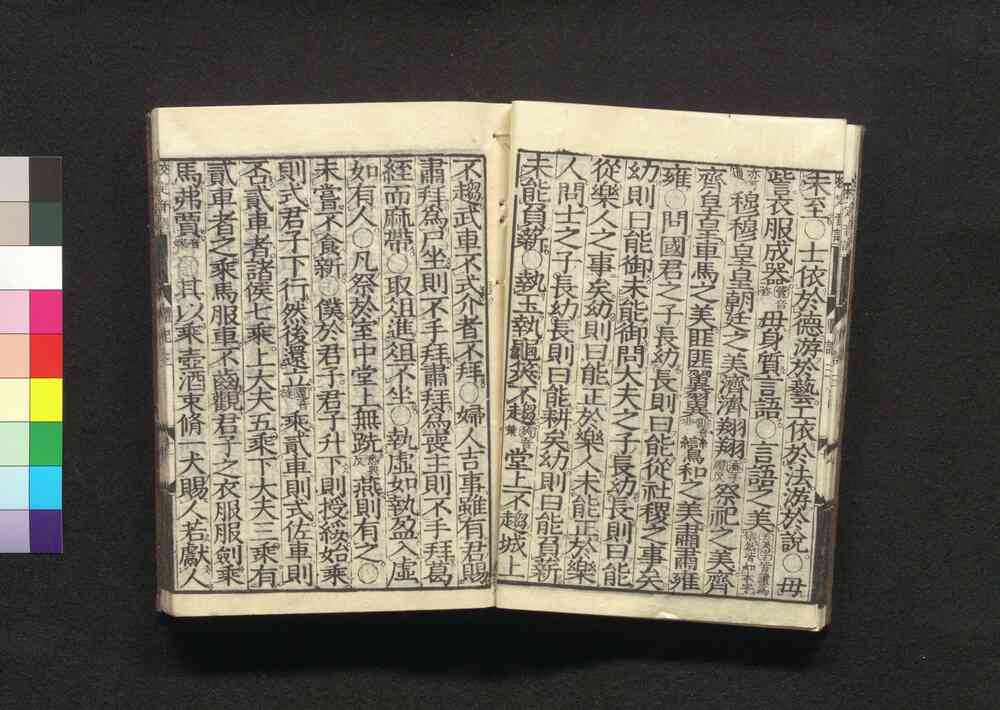 未至○士依於德游於藝工依於法游於說○毋
訾衣服成器毋身質言語○言語之美
穆穆皇皇朝廷之美濟濟翔翔祭祀之美齊
齊皇皇車馬之美匪匪翼翼鸞和之美肅肅雍
雍○問國君之子長幼長則曰能從社稷之事矣
幼則曰能御未能御問大夫之子長幼長則曰能
從樂人之事矣幼則曰能正於樂人未能正於樂
人問士之子長幼長則曰能耕矣幼則曰能負薪
未能負薪○執玉執龜筴不趨堂上不趨城上
不趨武車不式介者不拜○婦人吉事雖有君賜
肅拜爲尸坐則不手拜肅拜爲喪主則不手拜葛
絰而麻帶○取俎進俎不坐○執虛如執盈入虛
如有人○凡祭於室中堂上無跣燕則有之○
未嘗不食新○僕於君子君子升下則授綏始乘
則式君子下行然後還立○乘貳車則式佐車則
否貳車者諸侯七乘上大夫五乘下大夫三乘有
貳車者之乘馬服車不齒觀君子之衣服服劍乘
馬弗賈○其以乘壺酒束脩一犬賜人若獻人